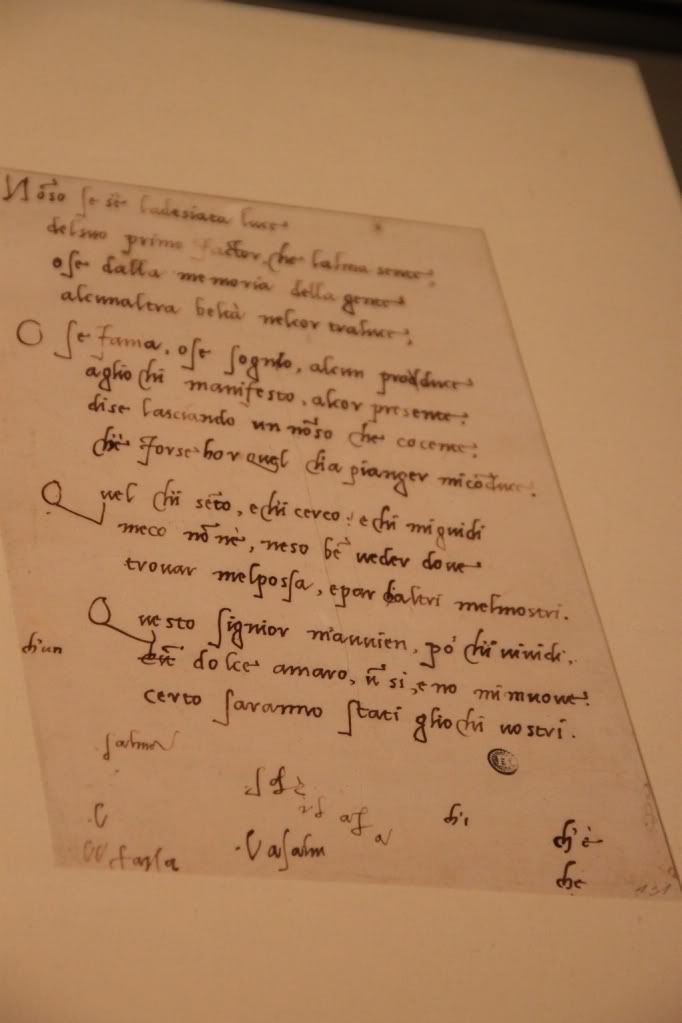 Nō so se s'è la desiata luce
del suo primo factor, che lalma sente,
o se dalla memoria della gente
alcunaltra beltà nel cor traluce,
O se fama, o se sognio, alcun prodduce
agli ochi manifesto, alcor presente:
di se lasciando un nō so che cocente:
ch'è forse hor quel ch'a pianger mi cōduce.
Quel ch'i sēto, e ch'i cerco: e chi mi guidi
meco nō n'è, ne so bē veder dove
trovar mel possa, e par ch'altri mel mostri.
Questo signior m'avvien, po' ch'i' vi vidi,
ch'un
dolce amaro, ū si, e no mi muove:
certo saranno stati gli ochi vostri.
ch'i
ch'è
che